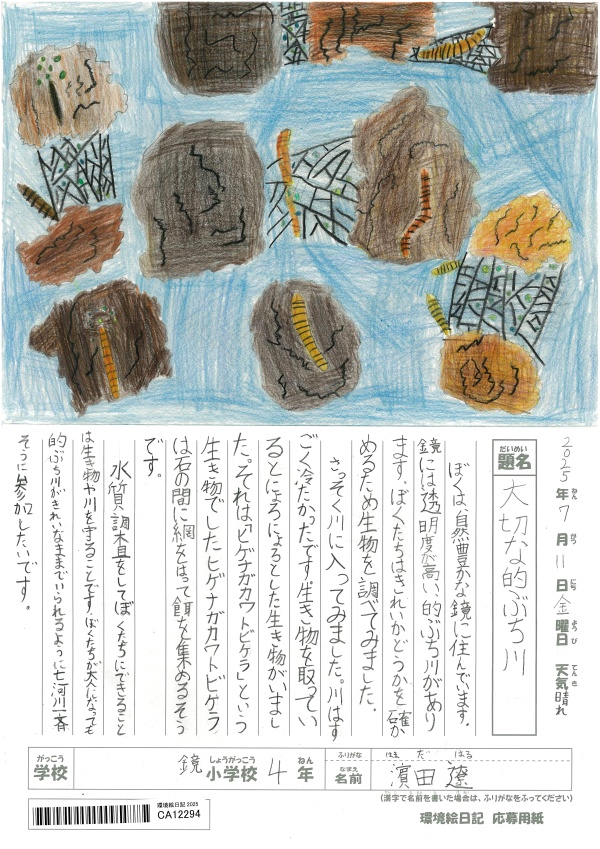 2025年7月11日金曜日 天気晴れ
ねん がつ にち ようび てんき
だいめい
題名
大切な的ぶち川
ぼくは、自然豊かな鏡に住んでいます。
鏡には透明度が高い的ぶち川があり
ます。ぼくたちはきれいかどうかを確か
めるため生物を調べてみました。
さっそく川に入ってみました。川はす
ごく冷たかったです生き物を取ってい
るとにょろにょろとした生き物がいまし
た。それは「ヒゲナガカワトビケラ」という
生き物でしたヒゲナガカワトビケラ
は石の間に網をはって餌を集めるそう
です。
水質調査をしてぼくたちにできること
は生き物や川を守ることです。ぼくたちが大人になっても
的ぶち川がきれいなままでいられるように七河川一斉
そうじに参加したいです。
がっこう
学校
鏡小学校4年
しょうがっこう ねん
ふりがな はま だ はる
なまえ
名前
濵田 遼
(漢字で名前を書いた場合は、ふりがなをふってください)
環境絵日記 2025
CA12294
環境絵日記 応募用紙